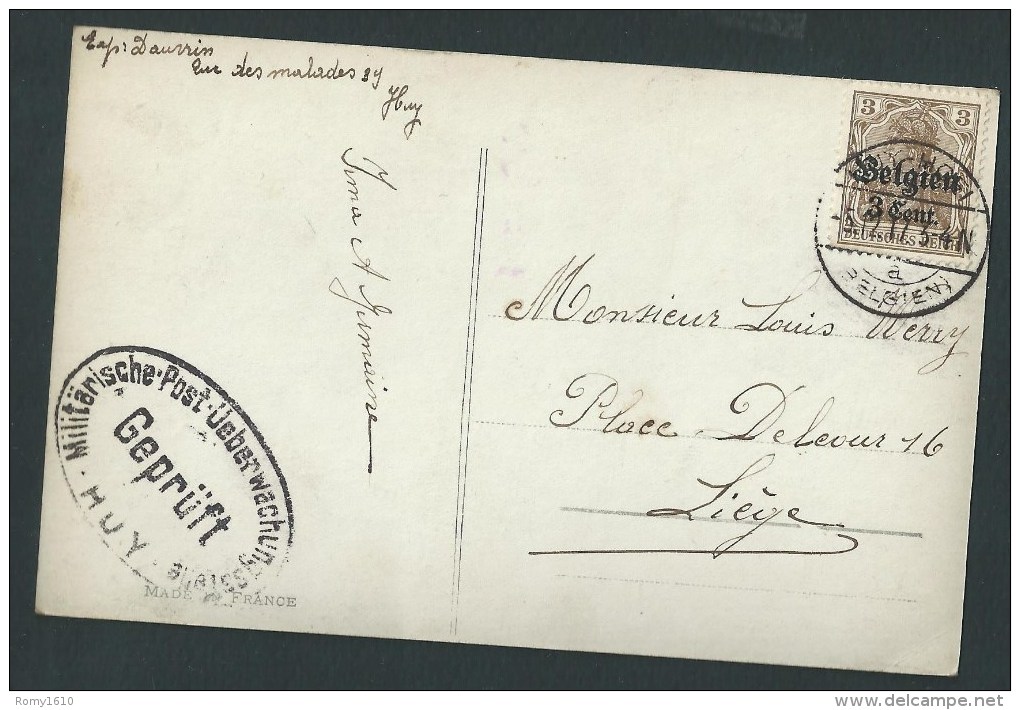 Exp: Dauvrin
Rue des malades 39
Huy
Irma A Germaine
3 3
Belgien
3 Cent.
DEUTSCHES REICH
3-4N
a
(BELGIEN)
Monsieur Louis Werry
Place Delcour 16
Liège
Militärische-Post-Ueberwachung
Geprüft
HUY
MADE FRANCE
Romy1610
delcampe.net